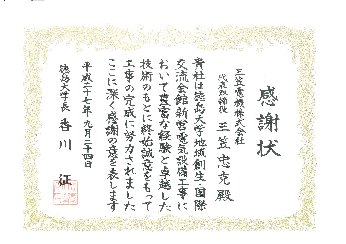 感謝状
三笠電機株式会社
代表取締役 三笠忠克殿
貴社は徳島大学地域創生・国際
交流会館新営電気設備工事に
おいて豊富な経験と卓越した
技術のもとに終始誠意をもって
工事の完成に努力されました
ここに深く感謝の意を表します
平成二十七年九月二十四日
徳島大学長 香川 征